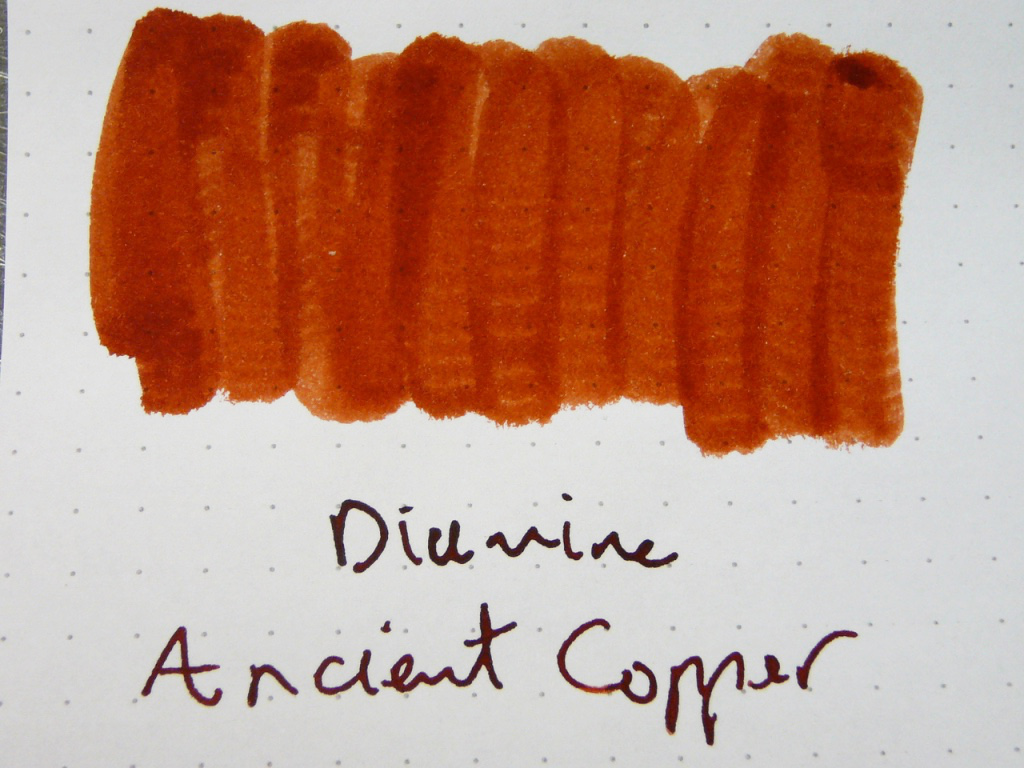 Diamine
Ancient Copper